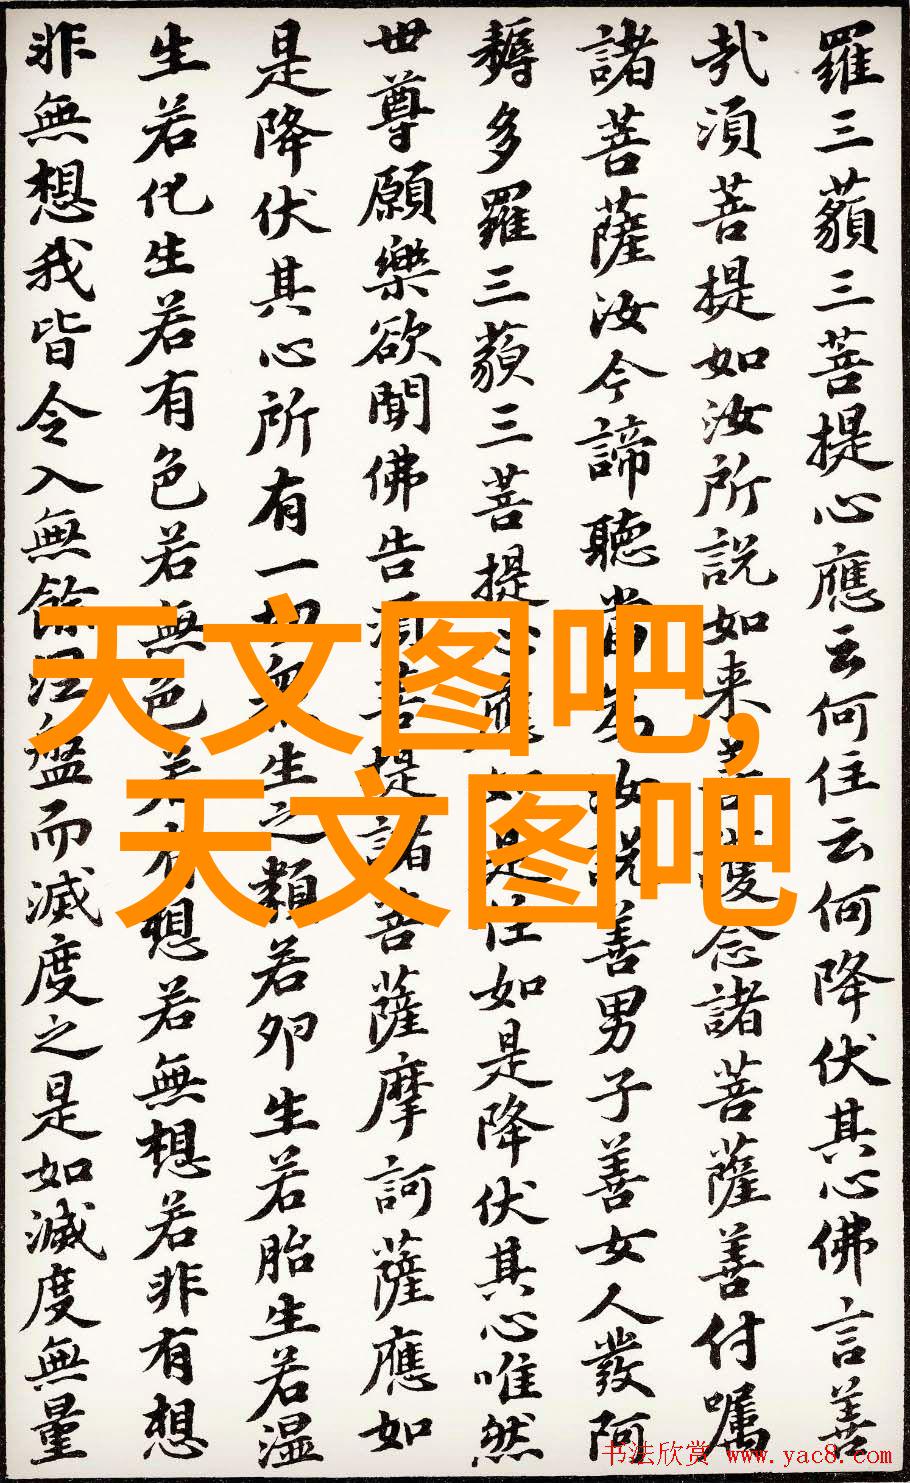 羅三藐三菩提心應云何住云何降伏其心佛言善
哉須菩提如汝所說如来善護念諸菩薩善付嘱
諸菩薩汝今諦聽當为汝說善男子善女人發阿
耨多羅三藐三菩提心應如是住如是降伏其心唯然
世尊願樂欲聞佛告須菩提諸菩薩摩訶薩應如
是降伏其心所有一切眾生之類若卵生若胎生若温
生若化生若有色若無色若有想若無想若非有想
非無想我皆令入無餘涅盤而滅度之是如滅度無量
天文图吧,
天文图吧
书法欣赏 www.yac8.com